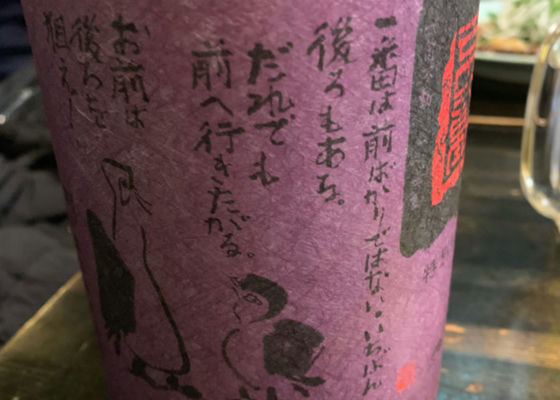 一番は前ばかりではない。いちばん
後ろもある。
だれでも
前へ行きたがる。
お前は
後ろを
狙え!